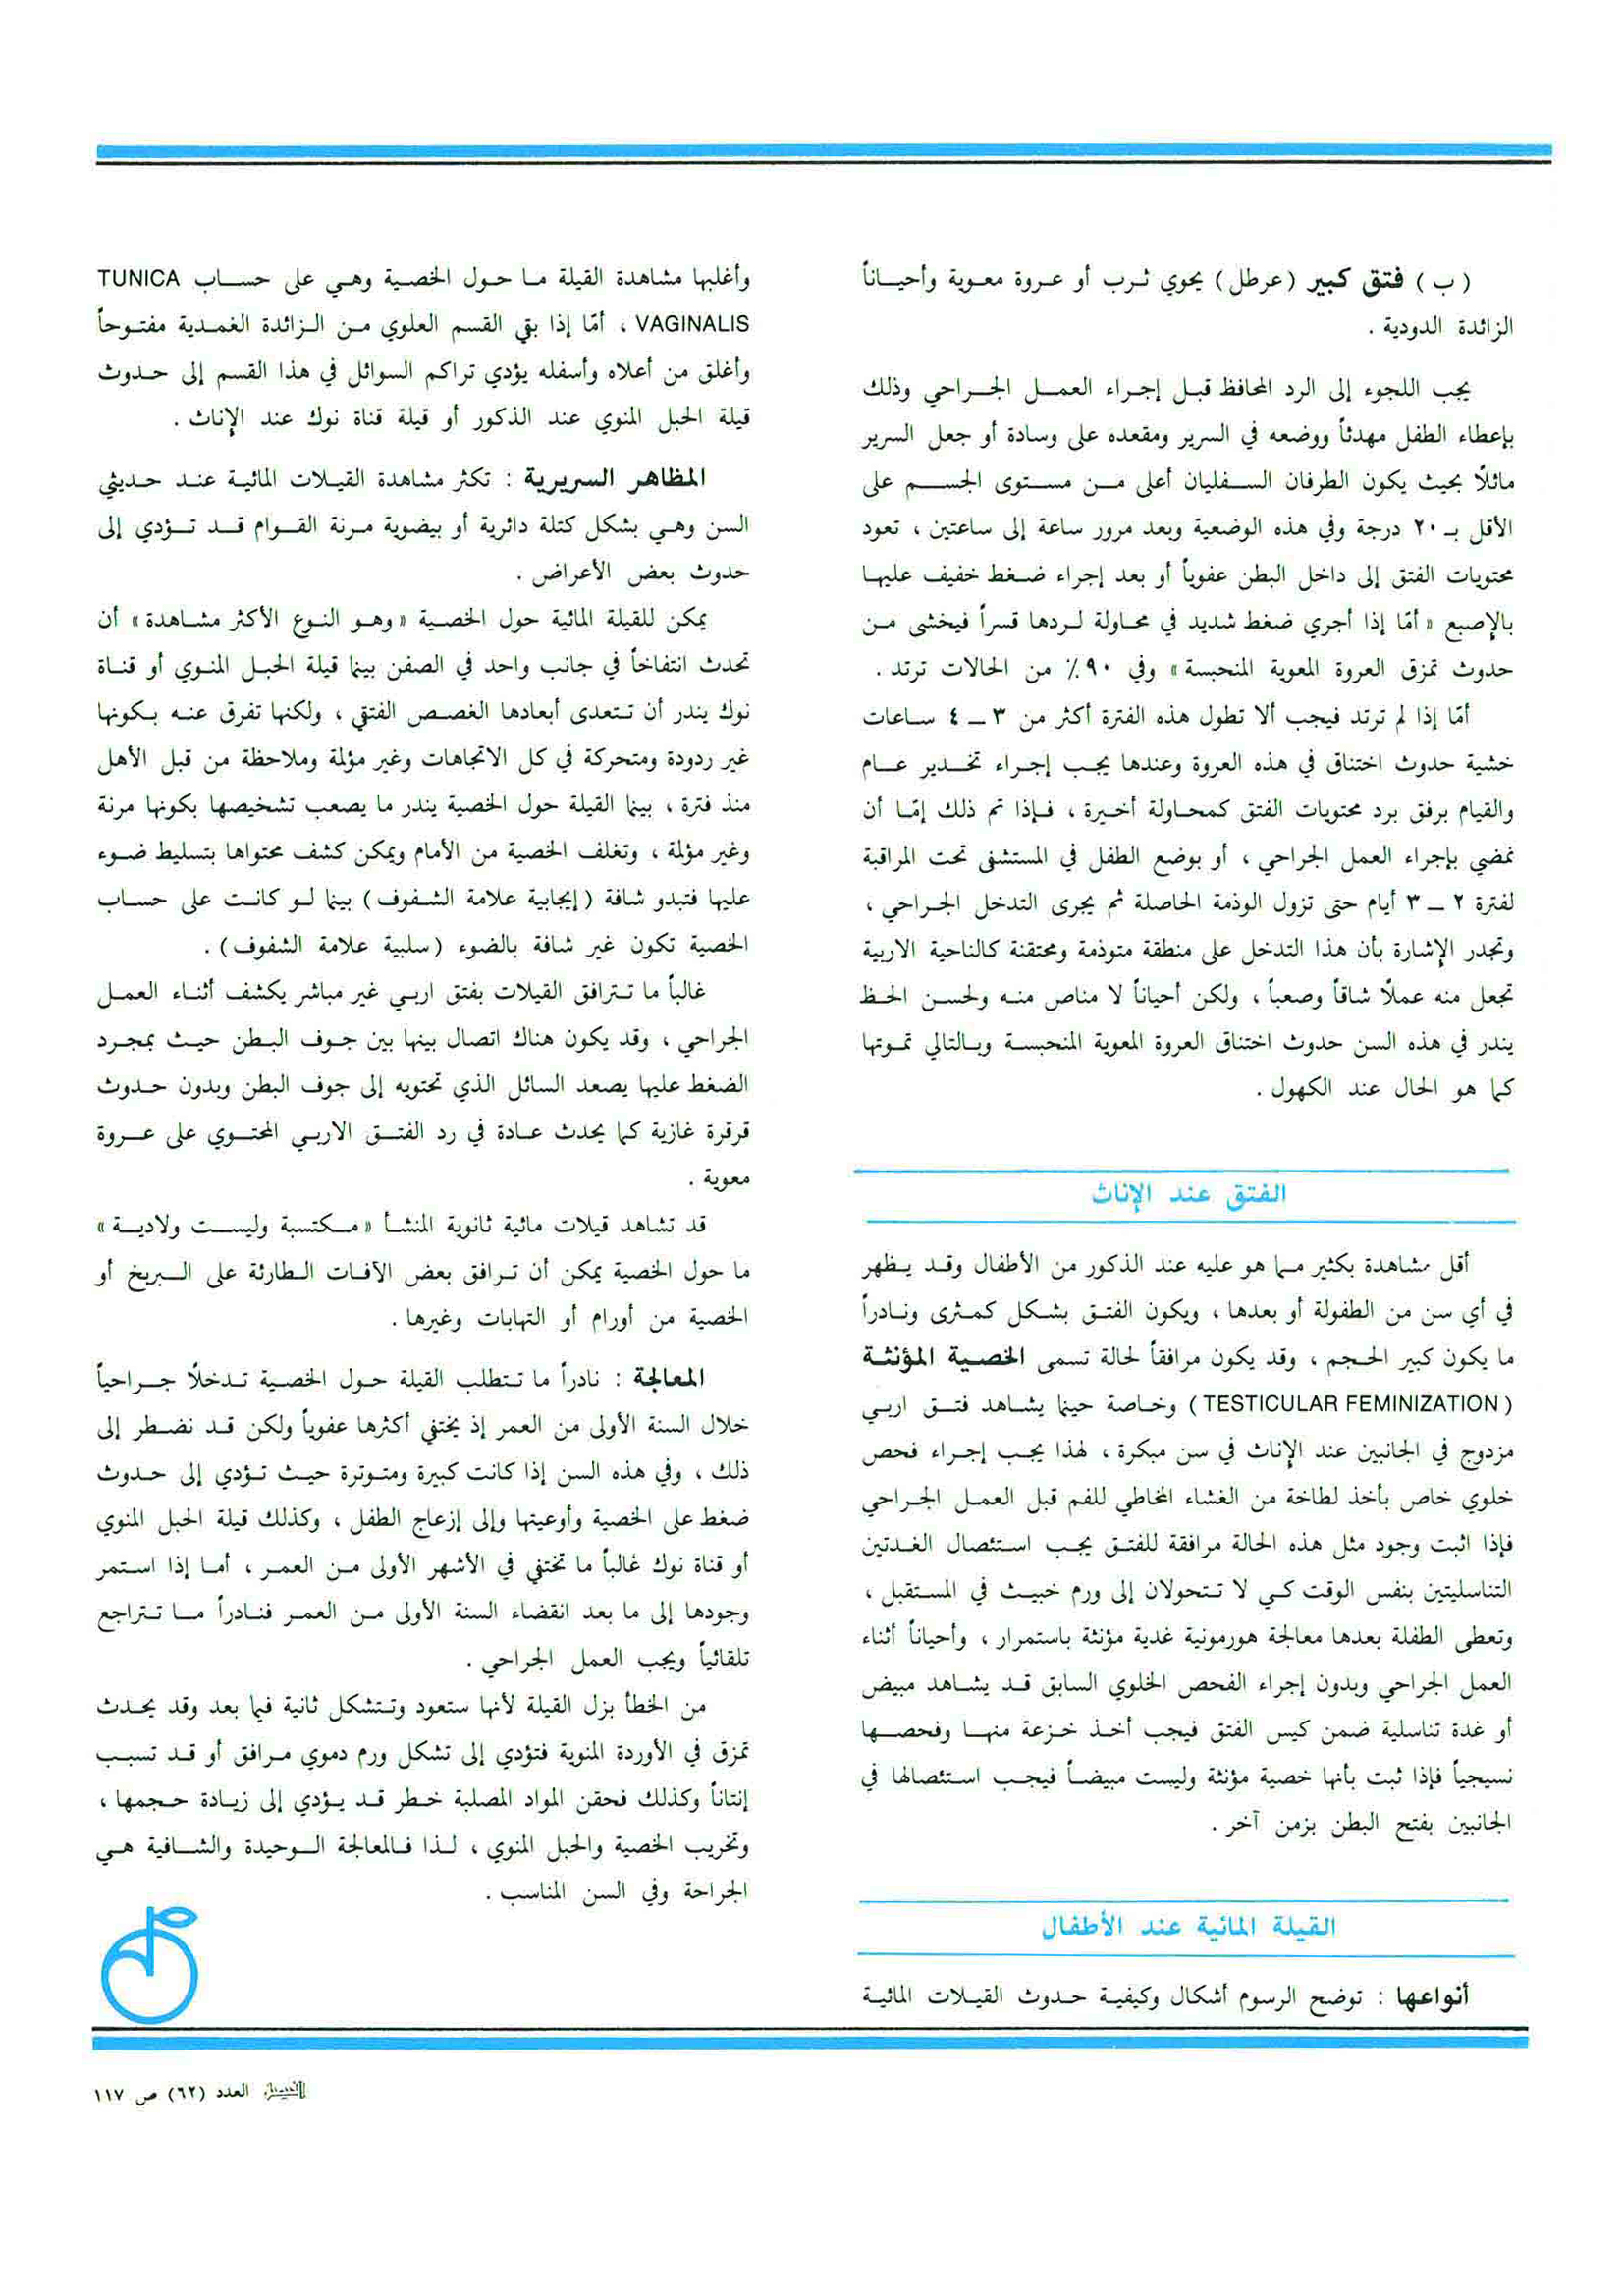 (ب) فتق كبير (عرطل) يحوي ثرب أو عروة معوية وأحياناً
الزائدة الدودية .
يجب اللجوء إلى الرد المحافظ قبل إجراء العمل الجراحي وذلك
بإعطاء الطفل مهدئاً ووضعه في السرير ومقعده على وسادة أو جعل السرير
مائلاً بحيث يكون الطرفان السفليان أعلى من مستوى الجسم على
الأقل بـ ٢٠ درجة وفي هذه الوضعية وبعد مرور ساعة إلى ساعتين ، تعود
محتويات الفتق إلى داخل البطن عفوياً أو بعد إجراء ضغط خفيف عليها
بالإصبع «أمّا إذا أجري ضغط شديد في محاولة لردها قسراً فيخشى من
حدوث تمزق العروة المعوية المنحبسة» وفي ٩٠٪ من الحالات ترتد .
أمّا إذا لم ترتد فيجب ألا تطول هذه الفترة أكثر من ٣ ــ ٤ ساعات
خشية حدوث اختناق في هذه العروة وعندها يجب إجراء تخدير عام
والقيام برفق برد محتويات الفتق كمحاولة أخيرة ، فإذا تم ذلك إمّا أن
نمضي بإجراء العمل الجراحي ، أو بوضع الطفل في المستشفى تحت المراقبة
لفترة ٢ ــ ٣ أيام حتى تزول الوذمة الحاصلة ثم يجرى التدخل الجراحي ،
وتجدر الإشارة بأن هذا التدخل على منطقة متوذمة ومحتقنة كالناحية الاربية
تجعل منه عملاً شاقاً وصعباً ، ولكن أحياناً لا مناص منه ولحسن الحظ
يندر في هذه السن حدوث اختناق العروة المعوية المنحبسة وبالتالي تموتها
كما هو الحال عند الكهول .
الفتق عند الإناث
أقل مشاهدة بكثير مما هو عليه عند الذكور من الأطفال وقد يظهر
في أي سن من الطفولة أو بعدها ، ويكون الفتق بشكل كمثرى ونادراً
ما يكون كبير الحجم ، وقد يكون مرافقاً لحالة تسمى الخصية المؤنثة
(TESTICULAR FEMINIZATION) وخاصة حينما يشاهد فتق اربي
مزدوج في الجانبين عند الإناث في سن مبكرة ، لهذا يجب إجراء فحص
خلوي خاص بأخذ لطاخة من الغشاء المخاطي للفم قبل العمل الجراحي
فإذا اثبت وجود مثل هذه الحالة مرافقة للفتق يجب استئصال الغدتين
التناسليتين بنفس الوقت كي لا تتحولان إلى ورم خبيث في المستقبل ،
وتعطى الطفلة بعدها معالجة هورمونية غدية مؤنثة باستمرار ، وأحياناً أثناء
العمل الجراحي وبدون إجراء الفحص الخلوي السابق قد يشاهد مبيض
أو غدة تناسلية ضمن كيس الفتق فيجب أخذ خزعة منها وفحصها
نسيجياً فإذا ثبت بأنها خصية مؤنثة وليست مبيضاً فيجب استئصالها في
الجانبين بفتح البطن بزمن آخر .
القيلة المائية عند الأطفال
أنواعها : توضح الرسوم أشكال وكيفية حدوث القيلات المائية
وأغلبها مشاهدة القيلة ما حول الخصية وهي على حساب TUNICA
VAGINALIS ، أمّا إذا بقي القسم العلوي من الزائدة الغمدية مفتوحاً
وأغلق من أعلاه وأسفله يؤدي تراكم السوائل في هذا القسم إلى حدوث
قيلة الحبل المنوي عند الذكور أو قيلة قناة نوك عند الإناث .
المظاهر السريرية : تكثر مشاهدة القيلات المائية عند حديثي
السن وهي بشكل كتلة دائرية أو بيضوية مرنة القوام قد تؤدي إلى
حدوث بعض الأعراض .
يمكن للقيلة المائية حول الخصية «وهو النوع الأكثر مشاهدة» أن
تحدث انتفاخاً في جانب واحد في الصفن بينما قيلة الحبل المنوي أو قناة
نوك يندر أن تتعدى أبعادها الغصص الفتقي ، ولكنها تفرق عنه بكونها
غير ردودة ومتحركة في كل الاتجاهات وغير مؤلمة وملاحظة من قبل الأهل
منذ فترة ، بينما القيلة حول الخصية يندر ما يصعب تشخيصها بكونها مرنة
وغير مؤلمة ، وتغلف الخصية من الأمام ويمكن كشف محتواها بتسليط ضوء
عليها فتبدو شافة (إيجابية علامة الشفوف) بينما لو كانت على حساب
الخصية تكون غير شافة بالضوء (سلبية علامة الشفوف) .
غالباً ما تترافق القيلات بفتق اربي غير مباشر يكشف أثناء العمل
الجراحي ، وقد يكون هناك اتصال بينها بين جوف البطن حيث بمجرد
الضغط عليها يصعد السائل الذي تحتويه إلى جوف البطن وبدون حدوث
قرقرة غازية كما يحدث عادة في رد الفتق الاربي المحتوي على عروة
معوية .
قد تشاهد قيلات مائية ثانوية المنشأ «مكتسبة وليست ولادية»
ما حول الخصية يمكن أن ترافق بعض الآفات الطارئة على البربخ أو
الخصية من أورام أو التهابات وغيرها .
المعالجة : نادراً ما تتطلب القيلة حول الخصية تدخلاً جراحياً
خلال السنة الأولى من العمر إذ يختفي أكثرها عفوياً ولكن قد نضطر إلى
ذلك ، وفي هذه السن إذا كانت كبيرة ومتوترة حيث تؤدي إلى حدوث
ضغط على الخصية وأوعيتها وإلى إزعاج الطفل ، وكذلك قيلة الحبل المنوي
أو قناة نوك غالباً ما تختفي في الأشهر الأولى من العمر ، أما إذا استمر
وجودها إلى ما بعد انقضاء السنة الأولى من العمر فنادراً ما تتراجع
تلقائياً ويجب العمل الجراحي .
من الخطأ بزل القيلة لأنها ستعود وتتشكل ثانية فيما بعد وقد يحدث
تمزق في الأوردة المنوية فتؤدي إلى تشكل ورم دموي مرافق أو قد تسبب
إنتاناً وكذلك فحقن المواد المصلبة خطر قد يؤدي إلى زيادة حجمها ،
وتخريب الخصية والحبل المنوي ، لذا فالمعالجة الوحيدة والشافية هي
الجراحة وفي السن المناسب .
الفيصل العدد (٦٢) ص ١١٧